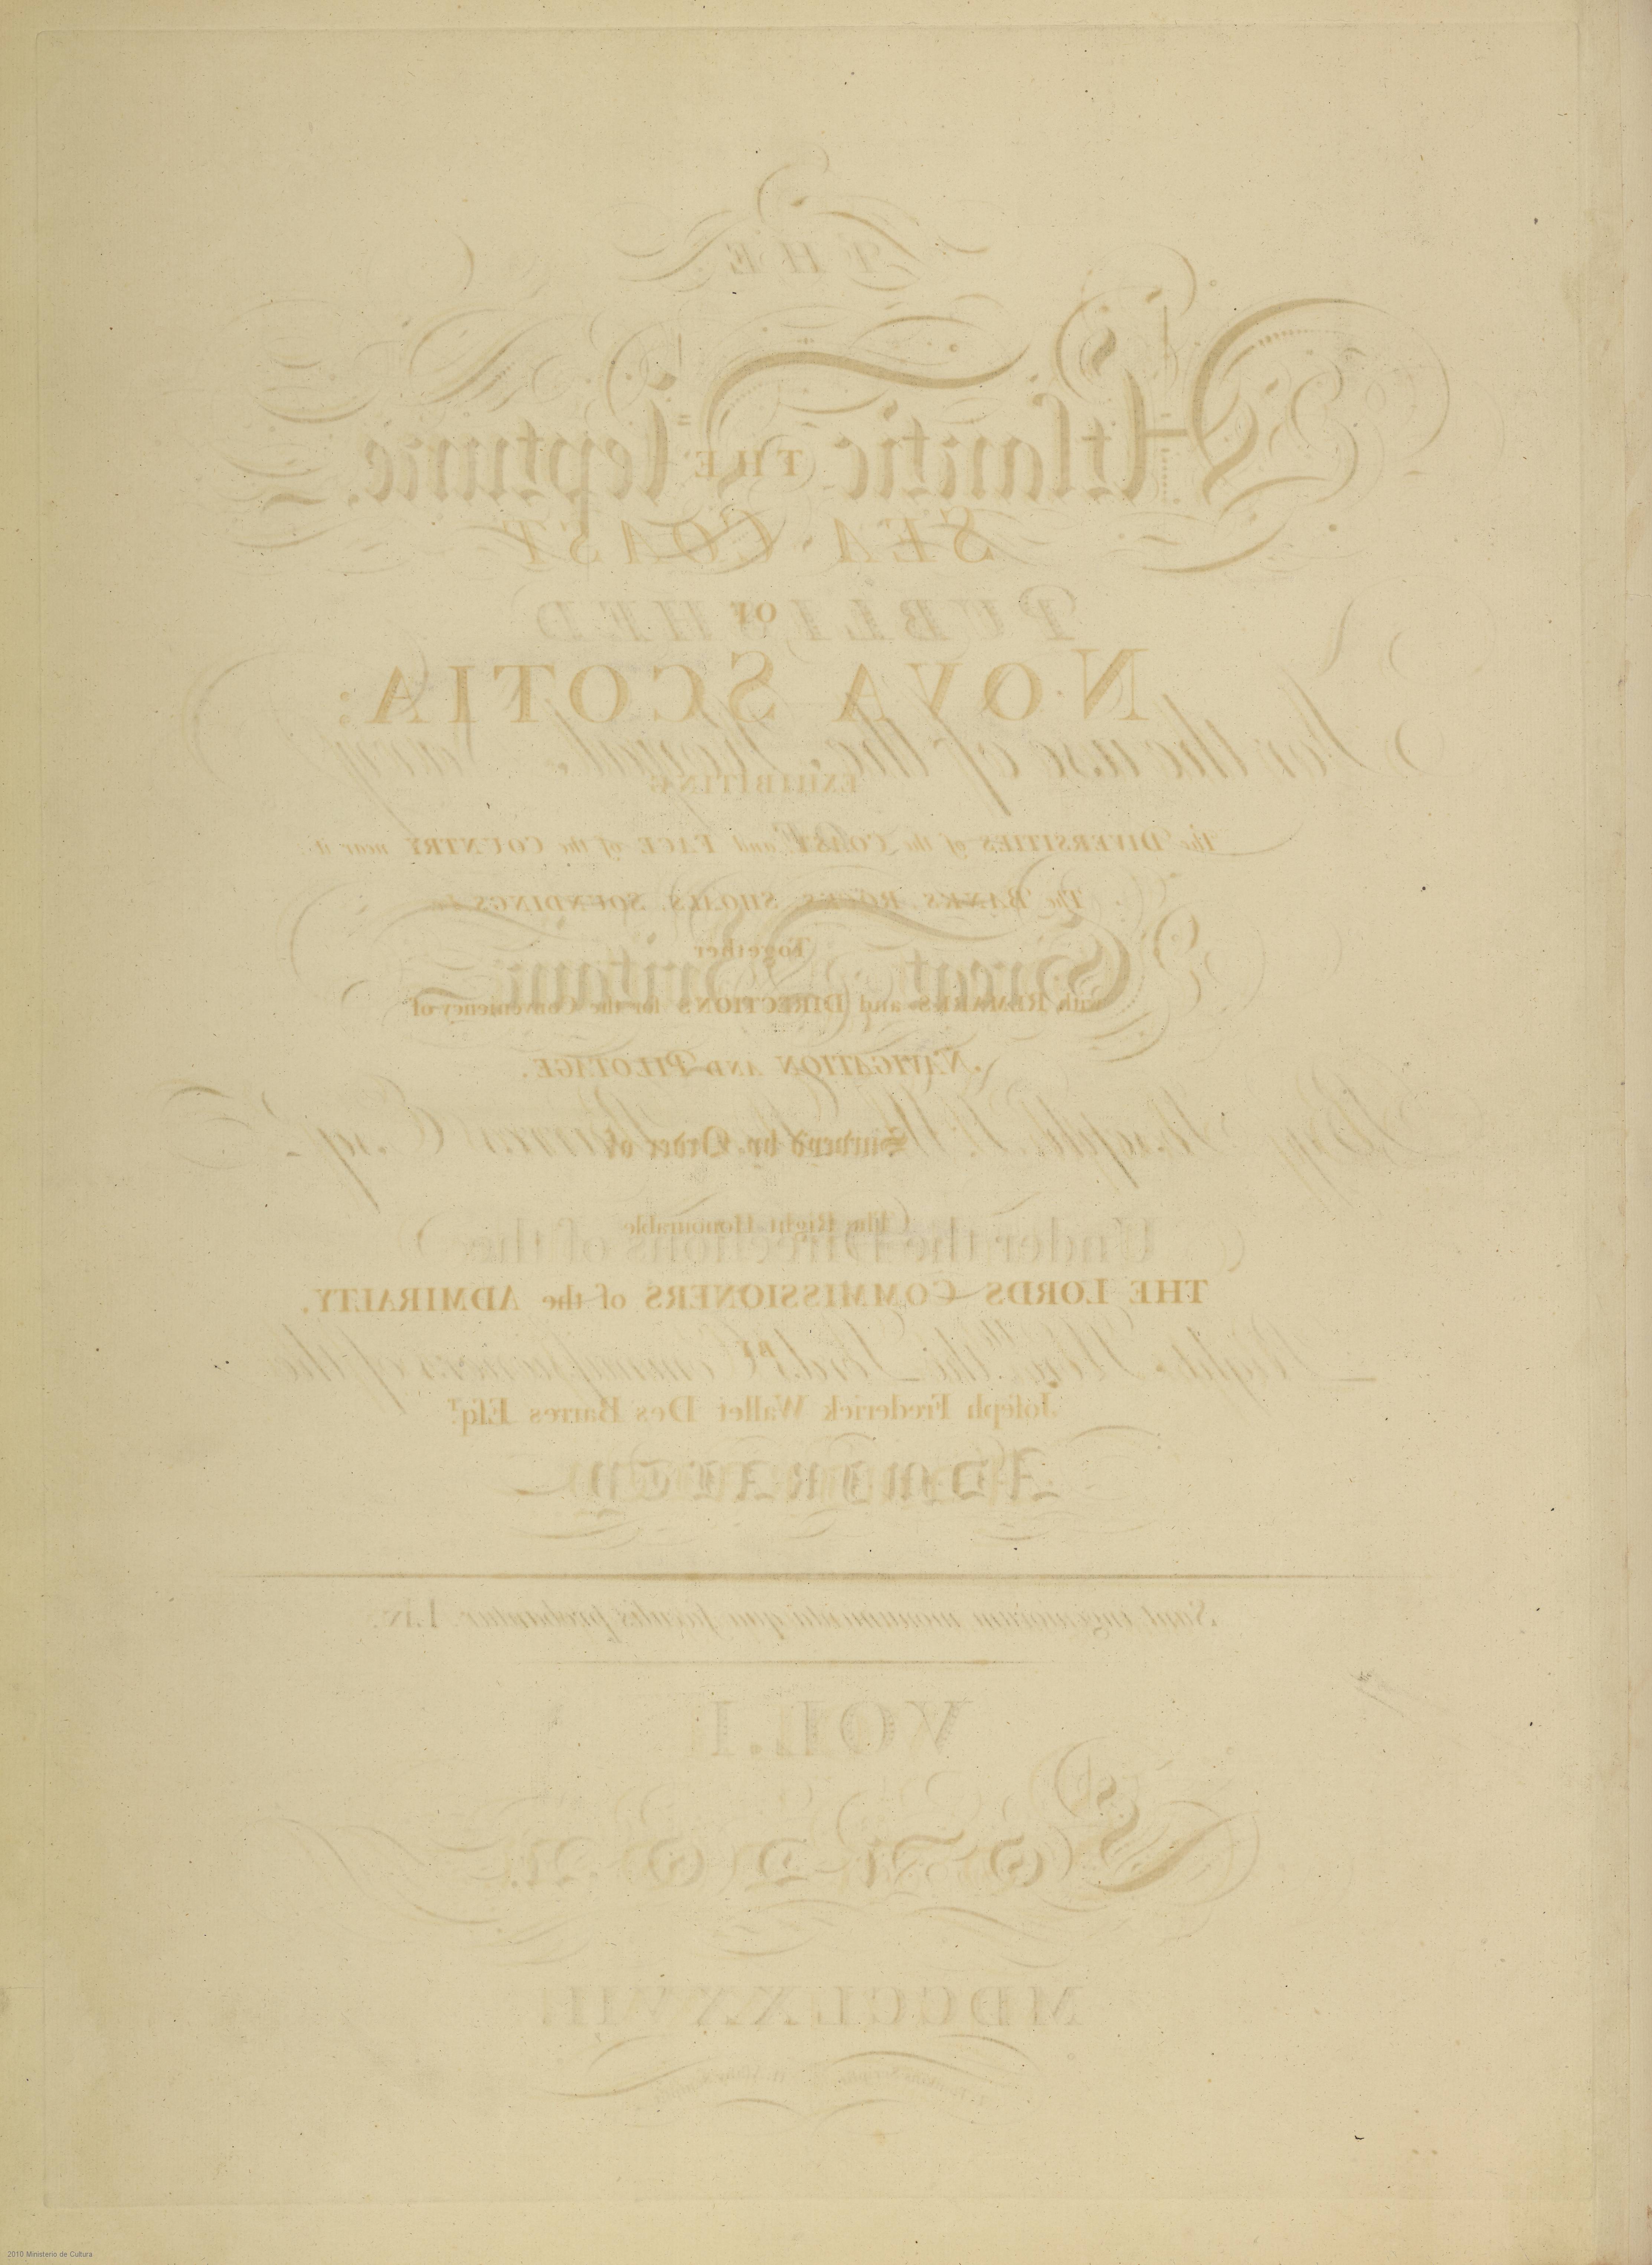 THE
Atlantic Neptune.
THE
SEA COAST
OF
PUBLISHED
NOVA SCOTIA:
For the use of the Royal Navy
EXHIBITING
The DIVERSITIES of the COAST, and FACE of the COUNTRY near it:
The BANKS, ROCKS, SHOALS, SOUNDINGS &c.
Together
Great Britain
with REMARKS and DIRECTIONS for the Conveniency of
NAVIGATION AND PILOTAGE.
By Joseph F. W. Des Barres Esq.r
Survey'd by Order of
The Right Honourable
Under the Directions of the
THE LORDS COMMISSIONERS of the ADMIRALTY,
BY
Right Hon.ble the Lords Commissioners of the
Joseph Frederick Wallet Des Barres Esqr.
ADMIRALTY
Sunt ingeniorum monumenta quæ sæculis probantur. Liv:
VOL. I.
LONDON.
MDCCLXXVII.
2010 Ministerio de Cultura